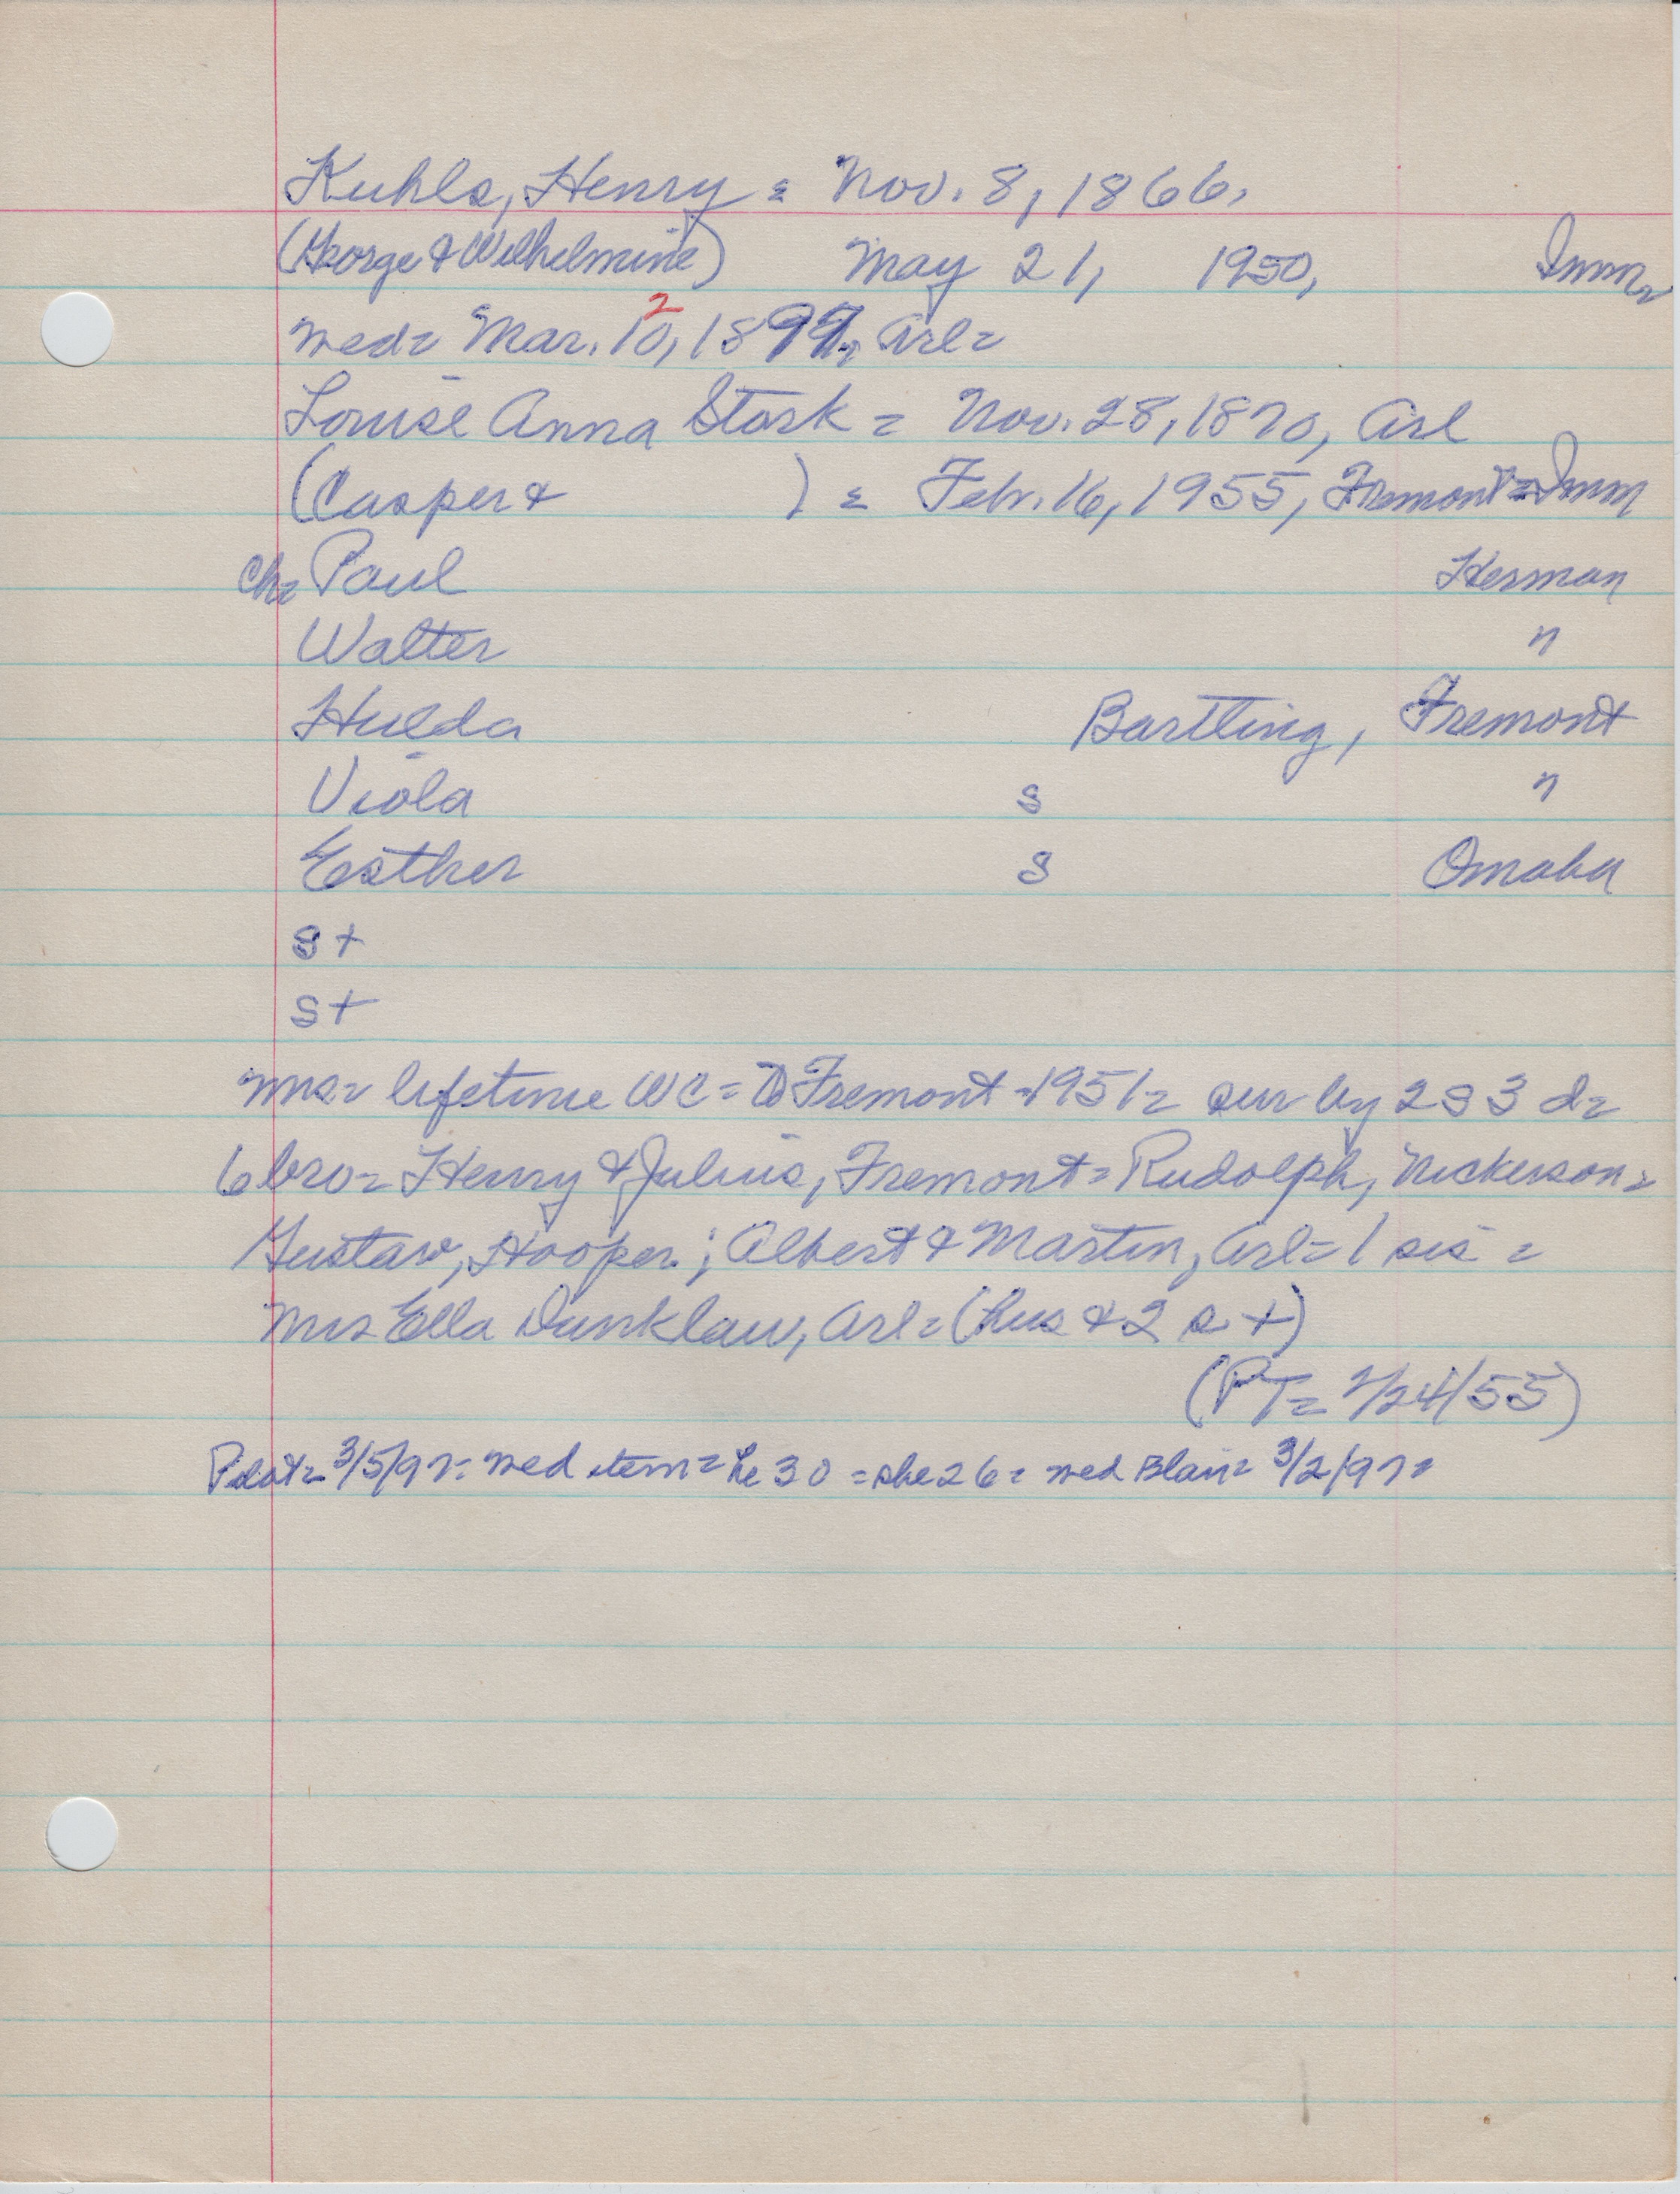 Kuhls, Henry = Nov. 8, 1866,
(George & Wilhelmine) May 21, 1950, Imm=
wed= Mar. 10, 1897, Arl=
2
Louise Anna Stork = Nov. 28, 1870, Arl
(Casper & ) = Feb. 16, 1955, Fremont = Imm
Ch= Paul Herman
Walter "
Hulda Bartling, Fremont
Viola S "
Esther S Omaha
S +
S +
Mrs= lifetime WC= Fremont 1951= sur by 2 S 3 d=
6 bro= Henry & Julius, Fremont= Rudolph, Nickerson=
Gustav, Hooper; Albert & Martin, Arl= 1 sis =
Mrs Ella Dunklau, Arl= (hus & 2 s +)
(PT= 2/24/55)
Pilot= 3/5/97= wed item= he 30 = she 26= wed Blair= 3/2/97=